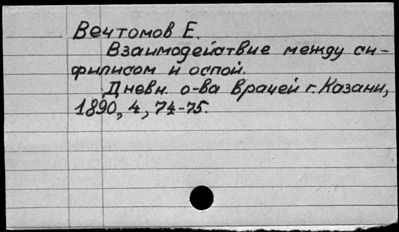 Вечтомов Е.
Взаимодействие между си-
филисом и оспой.
Дневн. о-ва врачей г. Казани,
1890, 4, 74-75.